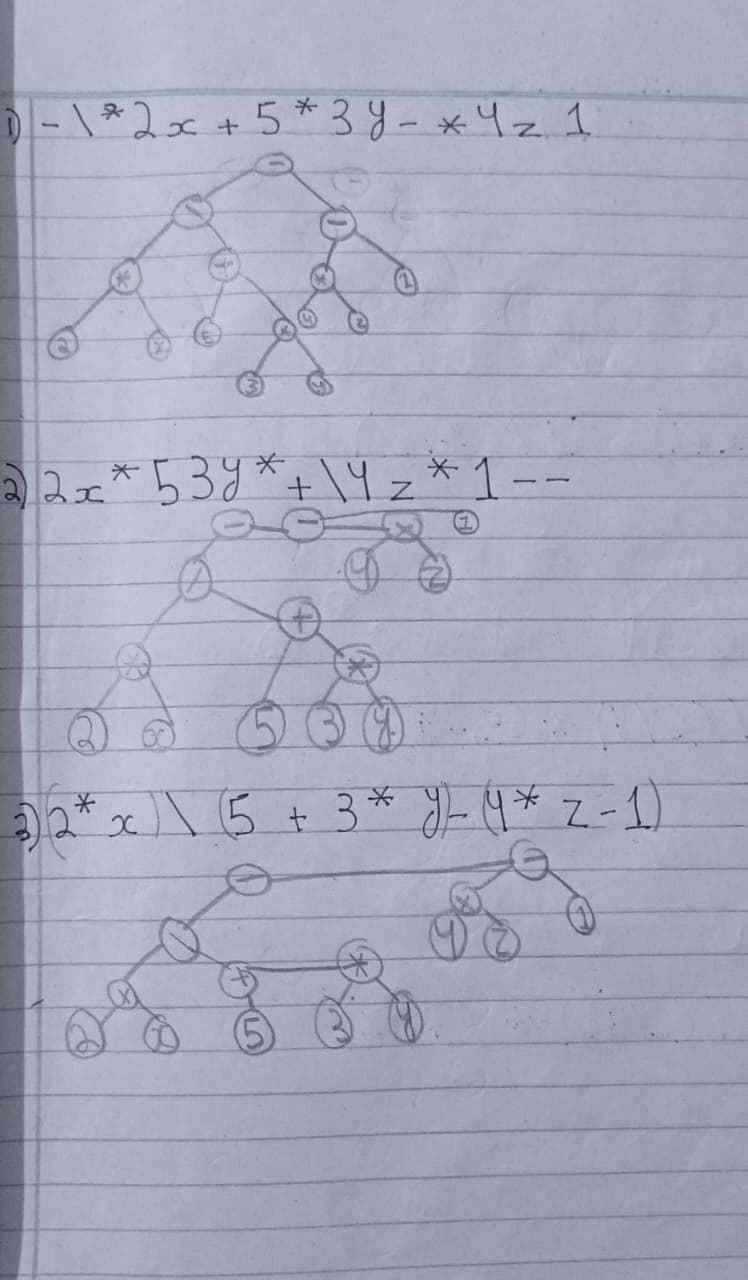 1) - \ * 2 x + 5 * 3 y - * 4 z 1
-
\ -
* + * 1
2 x 5 * 4 z
3 y
2) 2 x * 5 3 y * + \ 4 z * 1 - -
- - * 1
/ 4 z
+
* *
2 x 5 3 y
3) (2 * x) \ (5 + 3 * y) - (4 * z - 1)
- -
\ * 1
4 z
* + *
2 x 5 3 y